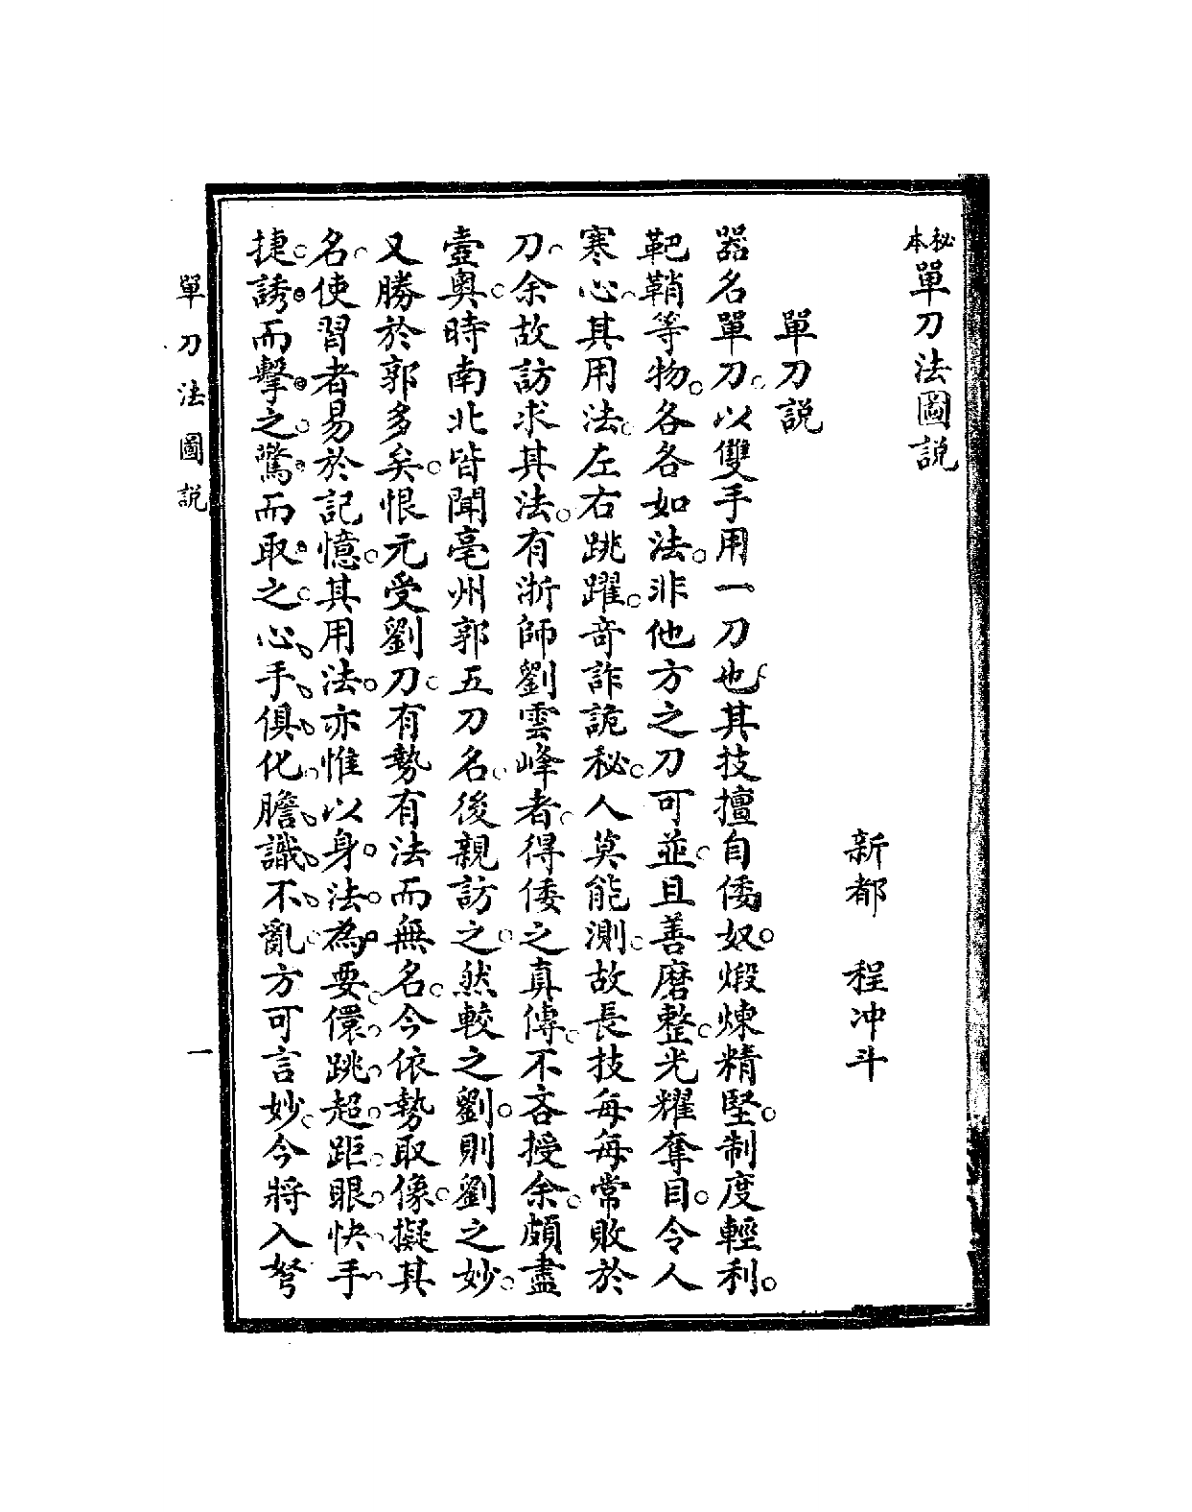 秘本單刀法圖説
新都　程冲斗
單刀説
器名單刀。以雙手用一刀也。其技擅自倭奴。煅煉精堅。制度輕利。
靶鞘等物。各各如法。非他方之刀可並。且善磨整。光耀奪目。令人
寒心。其用法。左右跳躍。奇詐詭秘。人莫能測。故長技每每常敗於
刀。余故訪求其法。有浙師劉雲峰者。得倭之真傳。不吝授余。頗盡
壼奥。時南北皆聞亳州郭五刀名。後親訪之。然較之劉。則劉之妙。
又勝於郭多矣。恨元受劉刀。有勢有法而無名。今依勢取像。擬其
名。使習者易於記憶。其用法。亦惟以身。法。為。要。儇。跳。超。距。眼。快。手。
捷。誘。而擊。之。驚。而取。之。心、手、俱、化、膽、識、不、亂。方可言妙。今將入弩
單刀法圖説
一